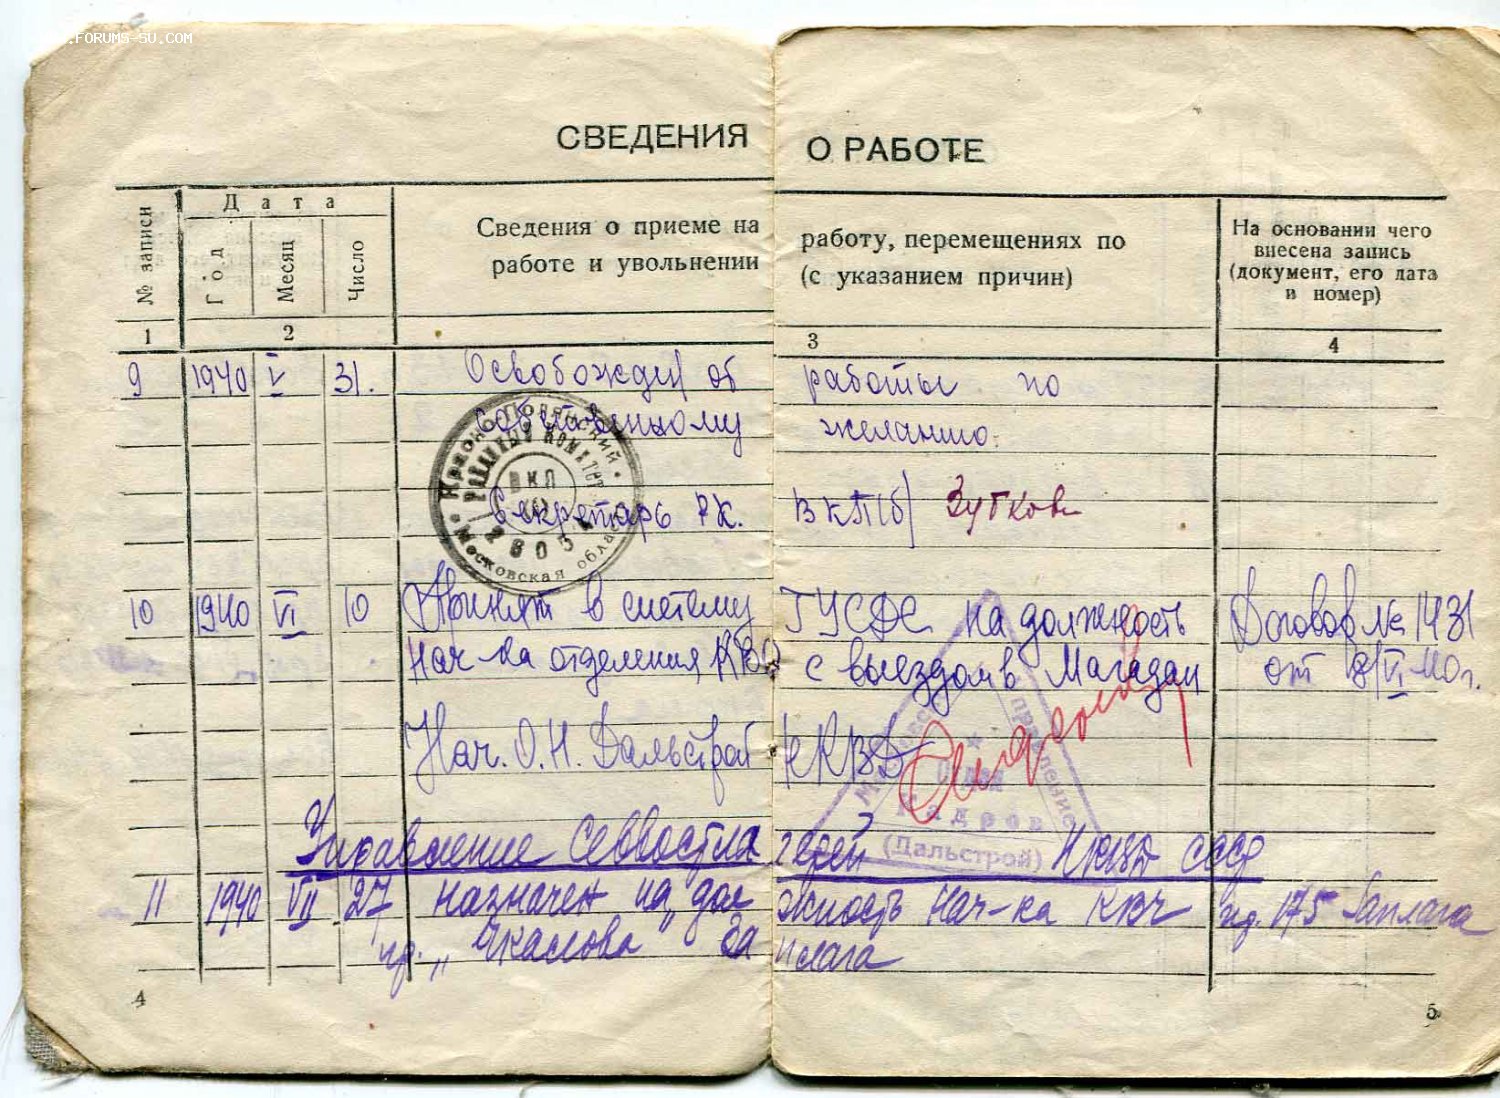 .FORUMS-SU.COM
СВЕДЕНИЯ О РАБОТЕ
№ записи
Дата
Год
Месяц
Число
Сведения о приеме на работу, перемещениях по
работе и увольнении (с указанием причин)
На основании чего
внесена запись
(документ, его дата
и номер)
1 2 3 4
9 1940 V 31. Освобожден от работы по
собственному желанию.
Секретарь РК. ВКП(б) Зубков
Красно-Полянский
районный комитет
ВКП
2805
Московская область
10 1940 VI 10 Принят в систему ГУСДС на должность Договор № 1431
нач-ка отделения КВО с выездом в Магадан от 8/VI 40 г.
Нач. О.Н. Дальстрой НКВД
Отдел
Кадров
(Дальстрой)
Управление Севвостлагерей НКВД СССР
11 1940 VII 27 назначен на должность нач-ка КВЧ пр. 175 Заплага
пр. „Чкалова" Заплага
4
5